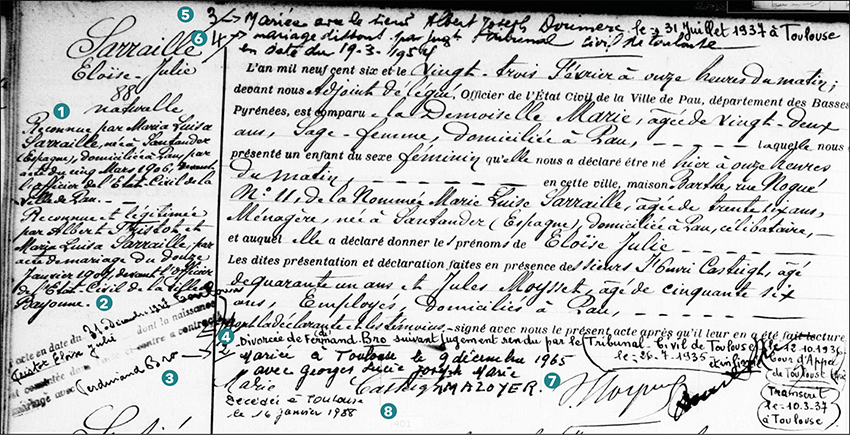 5 3 Mariée avec le sieur Albert Joseph Doumerc le 31 Juillet 1937 à Toulouse
6 4 mariage dissout par jugt Tribunal civil de Toulouse
en date du 19-3-1954
Sarraille
Eloïse-Julie
88
naturelle
1
Reconnue par Maria Luisa
Sarraille, née à Santander
(Espagne), domiciliée à Pau, par
acte du cinq Mars 1906, devant
l'officier de l'Etat Civil de la
Ville de Pau.
Reconnue et légitimée
par Albert et
Maria Luisa Sarraille, par
acte de mariage du douze
Janvier 1907, devant l'officier
de l'Etat Civil de la Ville de
Bayonne.
2
acte en date du 31 décembre
Eloïse Julie dont la naissance
est constatée dans acte contre a contracté
mariage avec Ferdinand Bro
3
L'an mil neuf cent six et le Vingt-trois Février à onze heures du matin;
devant nous Adjoint délégué, Officier de l'État Civil de la Ville de Pau, département des Basses
Pyrénées, est comparue la Demoiselle Marie, agée de Vingt-deux
ans, Sage-femme, domiciliée à Pau, laquelle nous
présenté un enfant du sexe féminin qu'elle nous a déclaré être né hier à onze heures
du matin, en cette ville, maison Barthe, rue Nogué
N° 11, de la Nommée Marie Luise Sarraille, agée de trente six ans,
Ménagère, née à Santander (Espagne), domiciliée à Pau, célibataire,
et auquel elle a déclaré donner les prénoms de Eloïse Julie
Les dites présentation et déclaration faites en présence des sieurs Henri Casteigh, agé
de quarante un ans et Jules Moysset, agé de cinquante six
ans, Employés, domiciliés à Pau
dont la déclarante et les témoins signé avec nous le présent acte après qu'il leur en a été fait lecture
4 Divorcée de Fernand Bro suivant jugement rendu par le Tribunal Civil de Toulouse
le 26.7.1935
le 12.10.1936
Cour d'Appel
de Toulouse
Transcrit
le 10.3.37
à Toulouse
Mariée à Toulouse le 9 décembre 1965
avec Georges Lucie Joseph Marie
MAZOYER. 7
Marie Casteigh
Décédée à Toulouse
le 16 janvier 1988
8
901